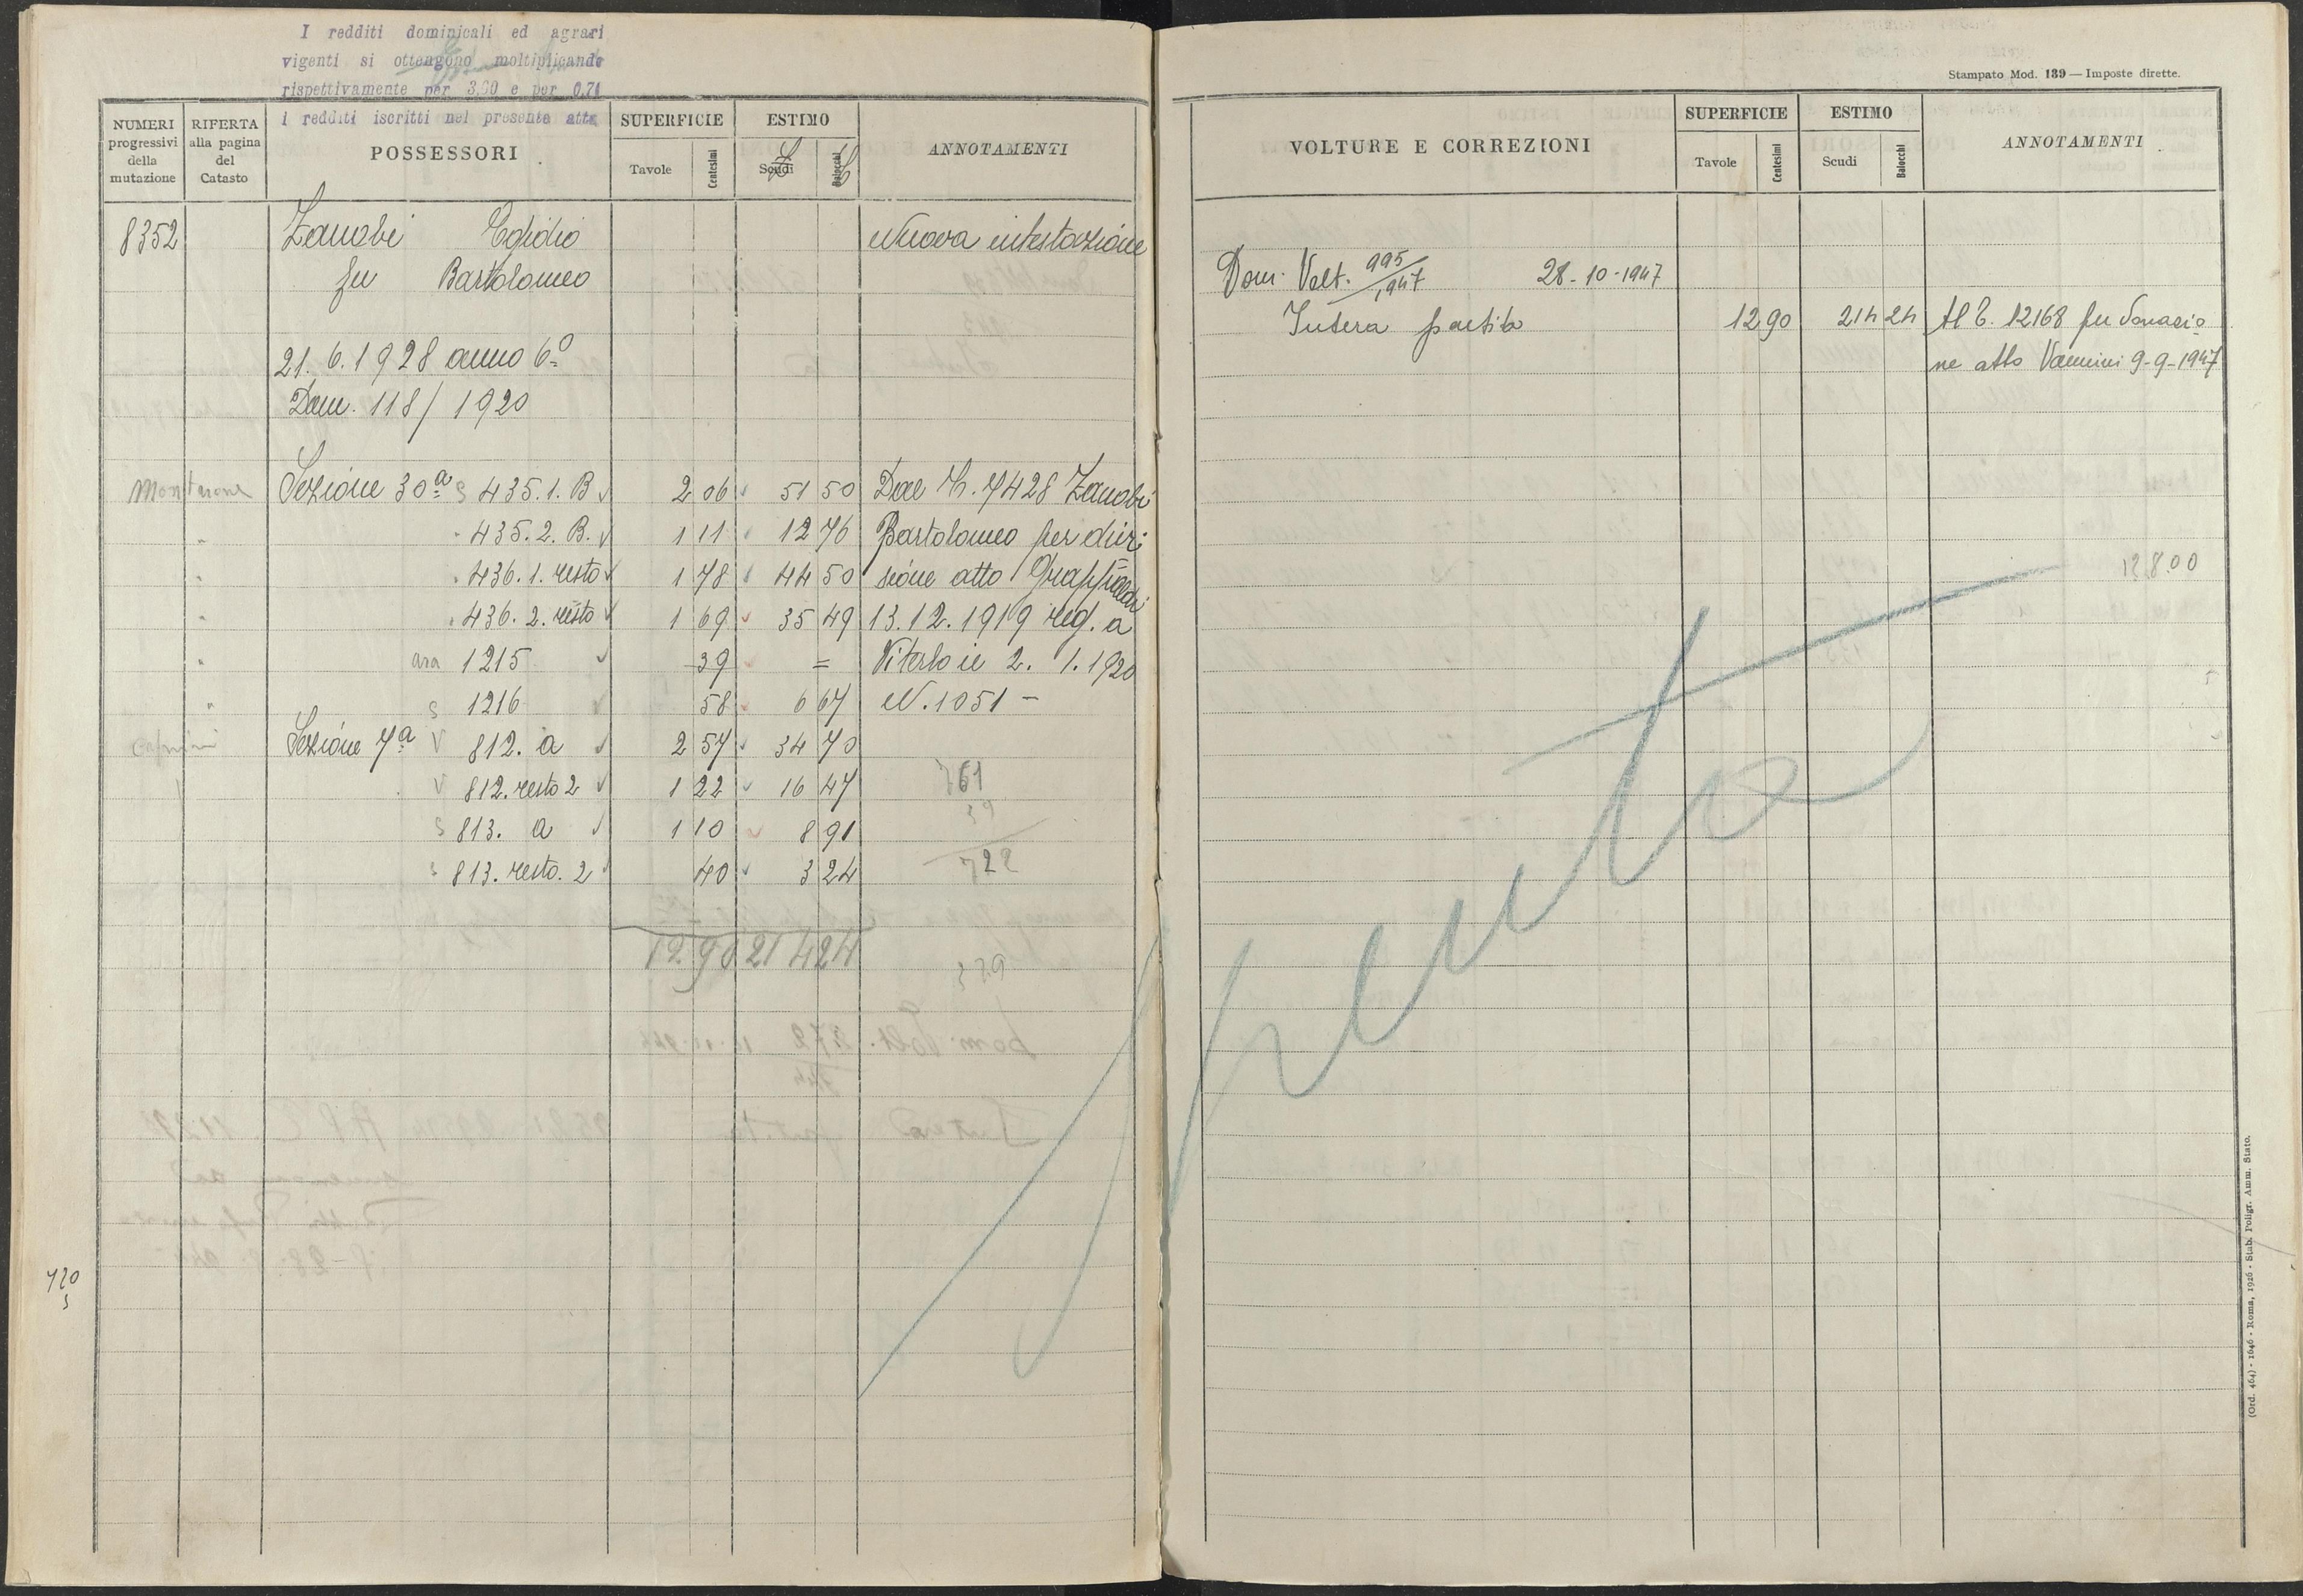 I redditi dominicali ed agrari
vigenti si ottengono moltiplicando
rispettivamente per 3,60 e per 0,71
i redditi iscritti nel presente atto
NUMERI progressivi della mutazione
RIFERTA alla pagina del Catasto
POSSESSORI
SUPERFICIE
Tavole Centesimi
ESTIMO
Scudi Baiocchi
ANNOTAMENTI
8352 Zanobi Egidio Nuova intestazione
fu Bartolomeo
21. 6. 1928 anno 6º
Dom. 118/1920
Montarone Sezione 30ª S 435.1. B 2 06 51 50 Dal N. 7428 Zanobi
" 435.2. B. 1 11 12 76 Bartolomeo per divi
" 436.1. resto 1 78 44 50 sione atto
" 436.2. resto 1 69 35 49 13.12.1919 reg. a
" ara 1215 39 = Viterbo il 2. 1. 1920
" S 1216 58 6 67 N. 1051 -
Sezione 7ª V 812. a 2 57 34 70
V 812. resto 2 1 22 16 47 761
S 813. a 1 10 8 91 39
S 813. resto. 2 40 3 24 722
12 90 214 24
339
720
s
Stampato Mod. 139 — Imposte dirette.
VOLTURE E CORREZIONI
SUPERFICIE
Tavole Centesimi
ESTIMO
Scudi Baiocchi
ANNOTAMENTI
Dom. Volt. 995/1947 28-10-1947
Intera partita 12 90 214 24 Al C. 12168 per donazio
ne atto Vannini 9-9-1947
1.38.00
Spento
(Ord. 464) - 1646 - Roma, 1926 - Stab. Poligr. Amm. Stato.